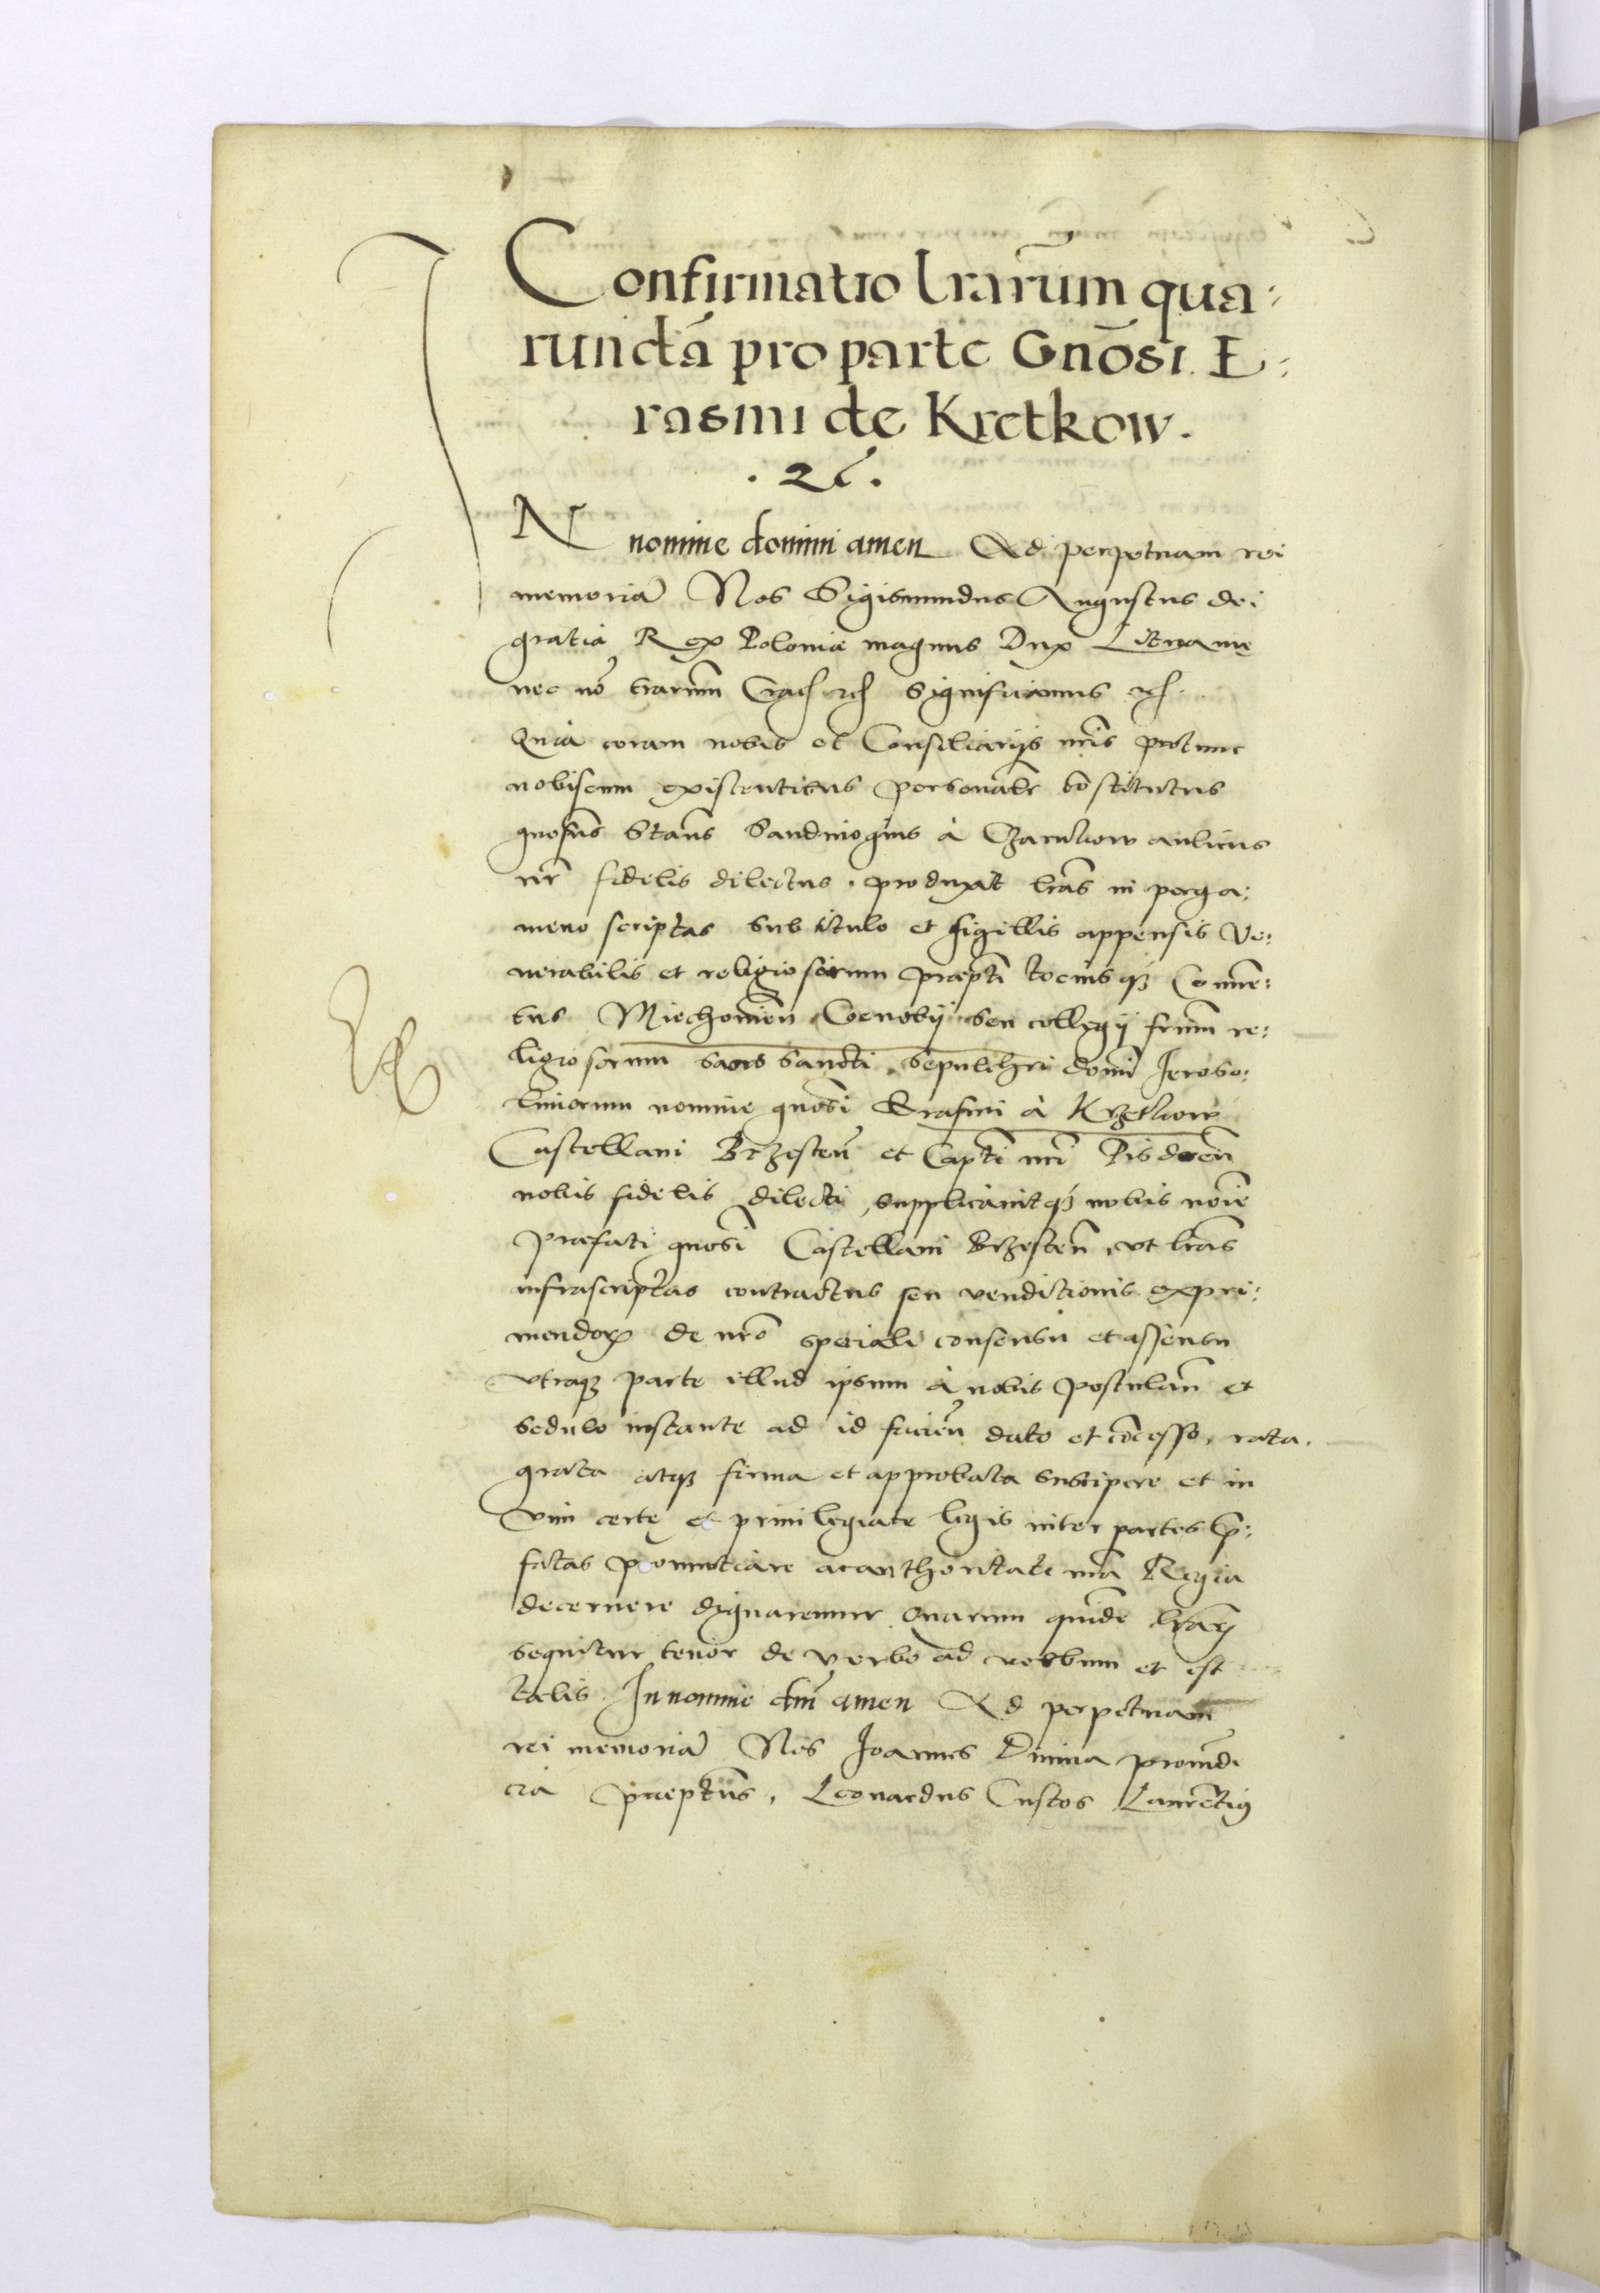 Confirmatio lrarum qua:
rundā pro parte Gnōsi E:
rasmi de Kretkow.
. 2c .
IN nomine domini amen Ad perpetuam rei
memoriā Nos Sigismundus Augustus dei
gratia Rex Poloniæ magnus Dux Lituanię
nec nō terrarum Crac etc Significamus etc.
Quia coram nobis et Consiliarijs nris protunc
nobiscum existentibus personalr cōstitutus
gnosus Stans Sandiuogius à Czarnkow aulicus
nr fidelis dilectus, produxit lras in perga:
meno scriptas sub titulo et sigillis appensis Ve:
nerabilis et religiosorum præpti tociusq; Conuen:
tus Miechouien Coenobij seu collegij frum re:
ligiosorum sacro sancti sepulchri domi Jeroso:
limorum nomine gnosi Erasmi à Krzetkow
Castellani Brzesten et Capti nri Pisdren
nobis fidelis dilecti, supplicauitq; nobis noie
præfati gnosi Castellani Brzesten, vt lras
infrascriptas contractus seu venditionis expri:
mendor de nro speciali consensu et assensu
vtraq; parte illud ipsum à nobis postulan et
sedulo instante ad id facien dato et cōcesso, rata,
grata atq; firma et approbata suscipere et in
vim certę et priuilegiate legis inter partes p:
fatas pronunciare ac authoritate nra Regia
decernere dignaremur. Quarum quidē lrar
sequitur tenor de verbo ad verbum et est
talis. In nomine dni amen Ad perpetuam
rei memoriā Nos Joannes Diuina prouidē
cia præptus, Leonardus Custos Laurentiq